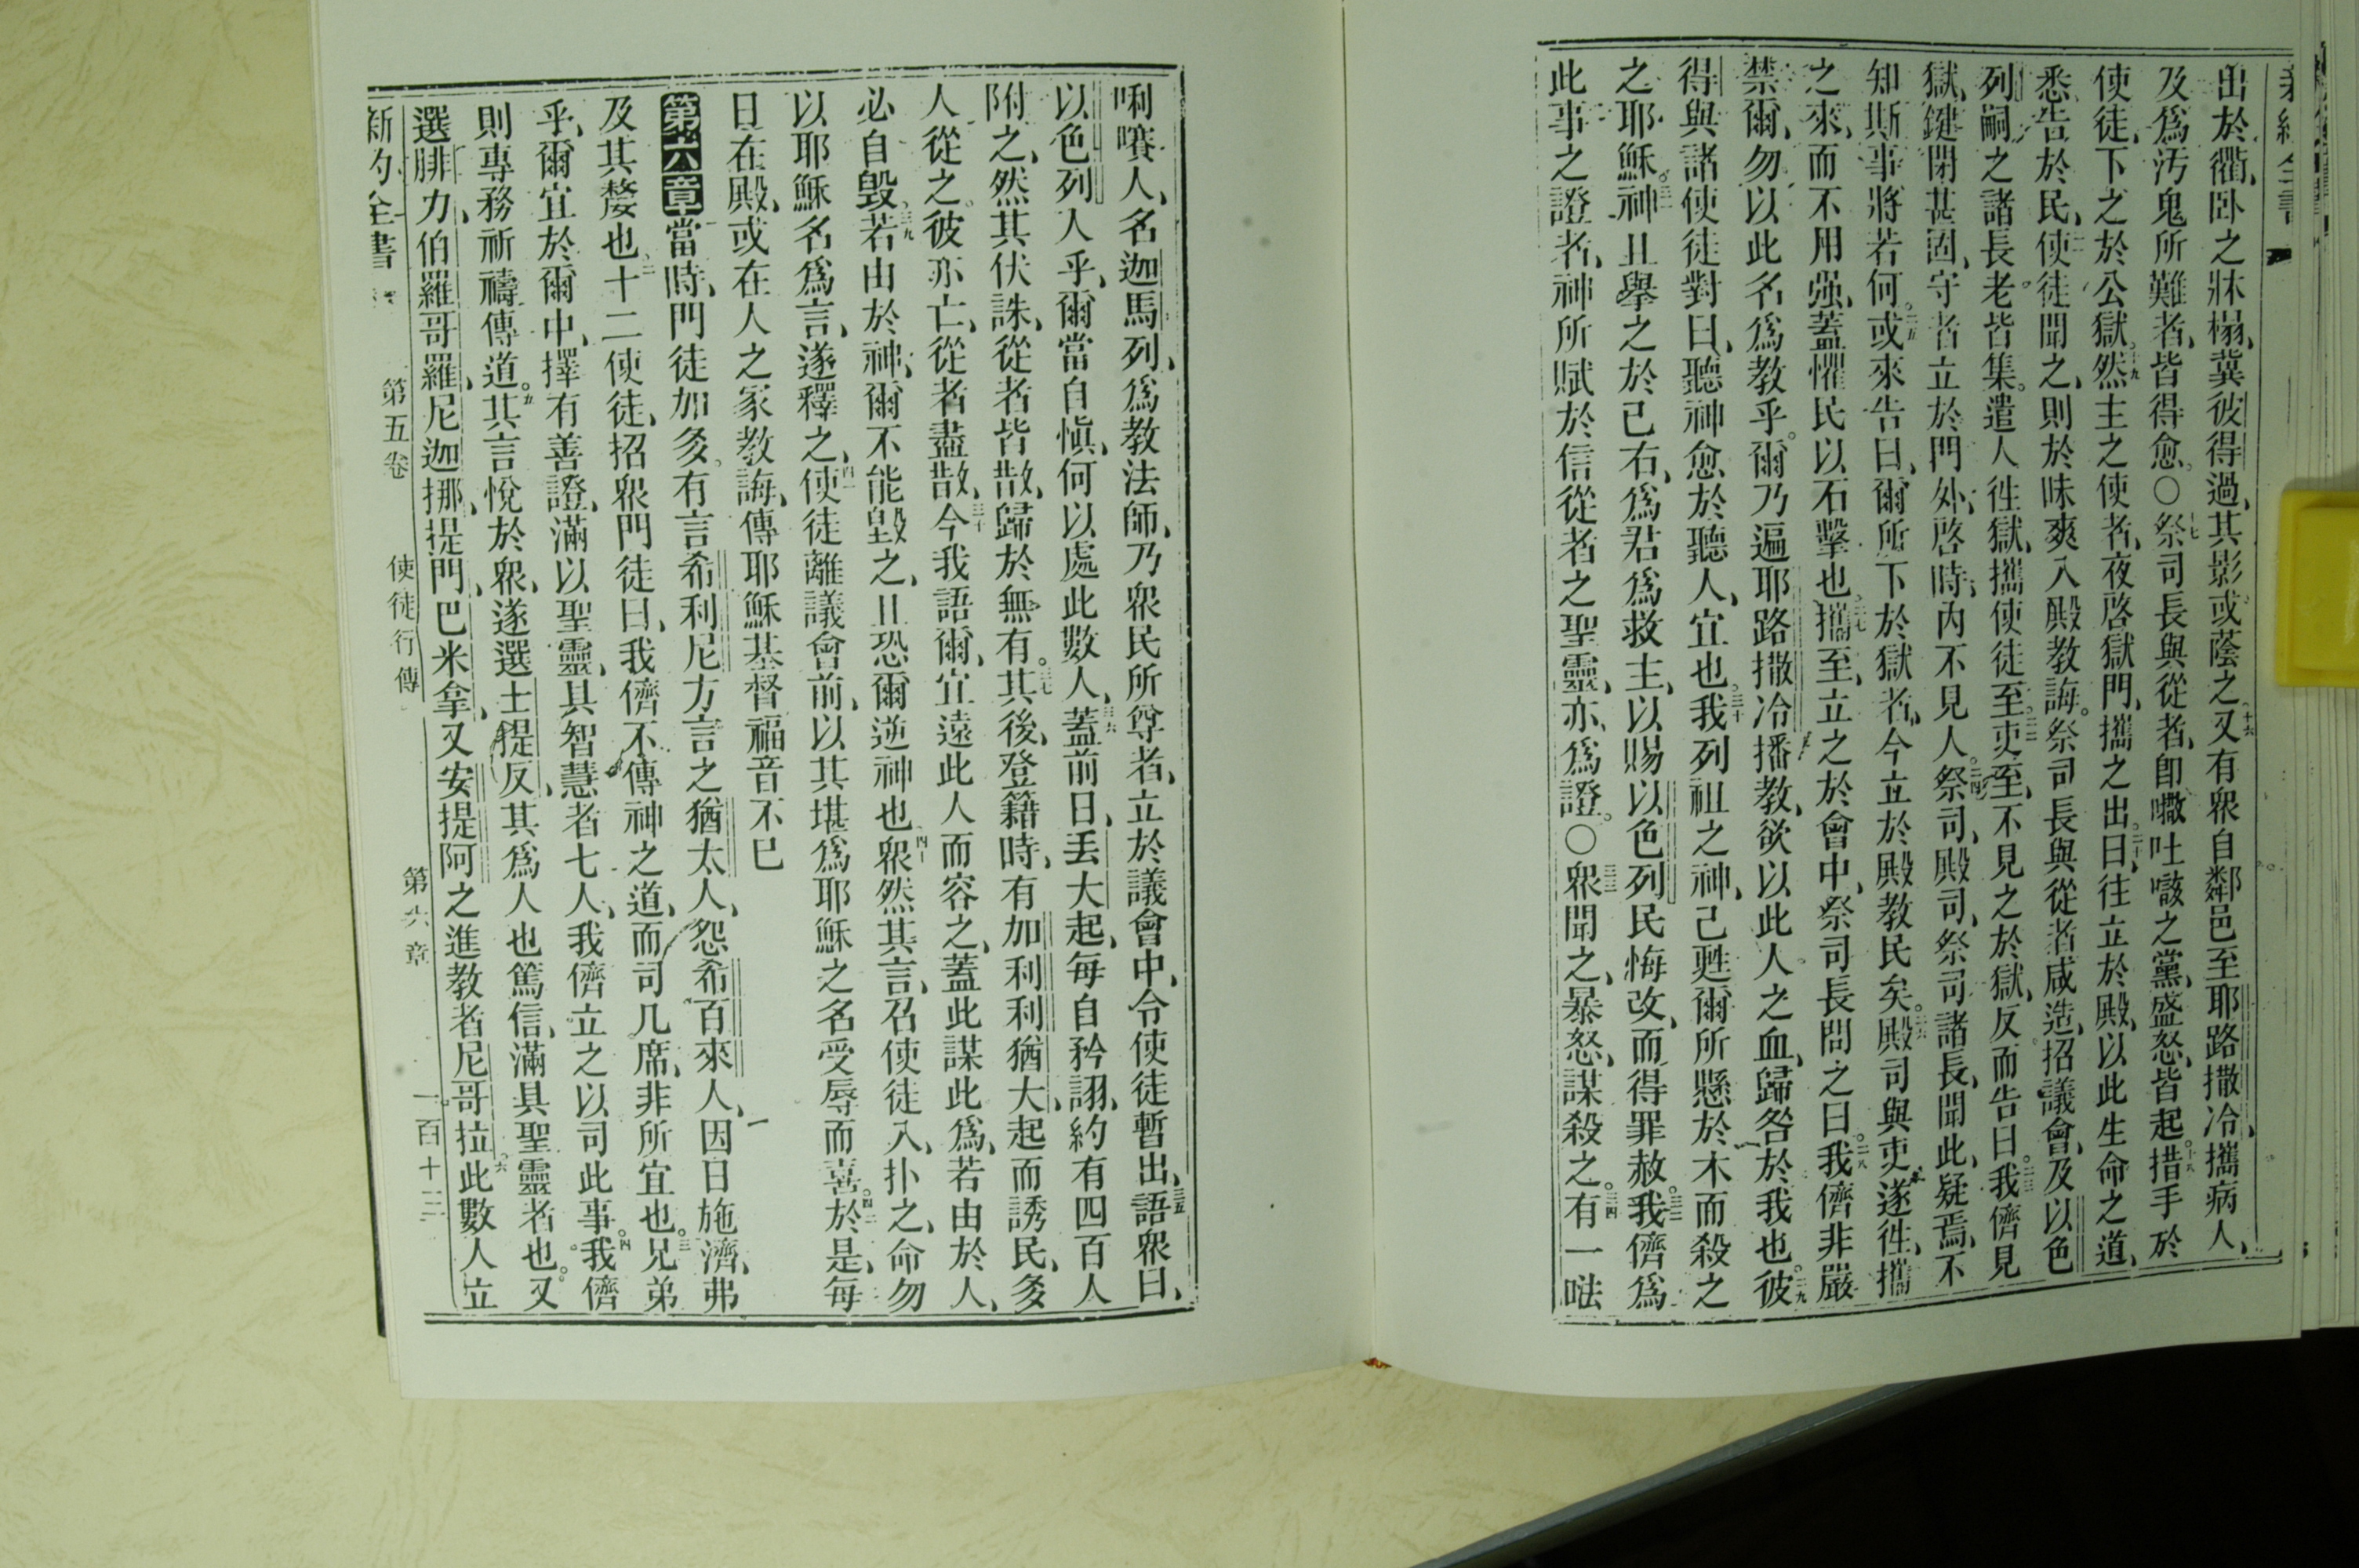 出於衢、臥之牀榻、冀彼得過、其影或蔭之、十六又有眾自鄰邑至耶路撒冷、攜病人、
及爲汚鬼所難者、皆得愈。〇十七祭司長與從者、卽𠼻吐𠹛之黨、盛怒、皆起。十八措手於
使徒、下之於公獄。十九然主之使者、夜啓獄門、攜之出。二十曰、往立於殿、以此生命之道、
悉告於民、二一使徒聞之、則於昧爽入殿教誨。祭司長與從者咸造、招議會、及以色
列嗣之諸長老。皆集。遣人徃獄、攜使徒至。二二吏至、不見之於獄、反而告曰。二三我儕見
獄、鍵閉甚固、守者立於門外、啓時、內不見人。二四祭司、殿司、祭司諸長、聞此、疑焉、不
知斯事將若何。二五或來告曰、爾所下於獄者、今立於殿教民矣。二六殿司與吏遂徃、攜
之來、而不用强、蓋懼民以石擊也。二七攜至、立之於會中、祭司長問之曰。二八我儕非嚴
禁爾、勿以此名爲教乎。爾乃遍耶路撒冷播教、欲以此人之血、歸咎於我也。二九彼
得與諸使徒對曰、聽神愈於聽人、宜也。三十我列祖之神、已甦爾所懸於木而殺之
之耶穌。三一神且舉之於己右、爲君爲救主、以賜以色列民悔改、而得罪赦。三二我儕爲
此事之證者、神所賦於信從者之聖靈、亦爲證。〇三三眾聞之、暴怒、謀殺之。三四有一㕸
唎㘔人、名迦馬列、爲教法師、乃眾民所尊者、立於議會中、令使徒暫出、三五語眾曰、
以色列人乎、爾當自愼、何以處此數人、三六蓋前日、丢大起、每自矜詡、約有四百人
附之、然其伏誅、從者皆散、歸於無有。三七其後、登籍時、有加利利猶大、起而誘民、多
人從之。彼亦亡、從者盡散、三十今我語爾、宜遠此人而容之、蓋此謀此爲、若由於人、
必自毀、三九若由於神、爾不能毀之、且恐爾逆神也。四十眾然其言、召使徒入、扑之、命勿
以耶穌名爲言、遂釋之、四一使徒離議會前、以其堪爲耶穌之名受辱而喜。四二於是、每
日在殿、或在人之家教誨、傳耶穌基督福音不已
第六章當時、門徒加多。有言希利尼方言之猶太人、怨希百來人、因日施濟、弗
及其嫠也、二十二使徒、招眾門徒曰、我儕不傳神之道、而司几席、非所宜也。三兄弟
乎、爾宜於爾中、擇有善證、滿以聖靈、具智慧者七人、我儕立之以司此事。四我儕
則專務祈禱傳道。五其言悅於眾、遂選士提反、其爲人也篤信、滿具聖靈者也。又
選腓力、伯羅哥羅、尼迦挪、提門、巴米拿、又安提阿之進教者尼哥拉。六此數人立
新約全書
第五卷
使徒行傳
第六章
一百十三